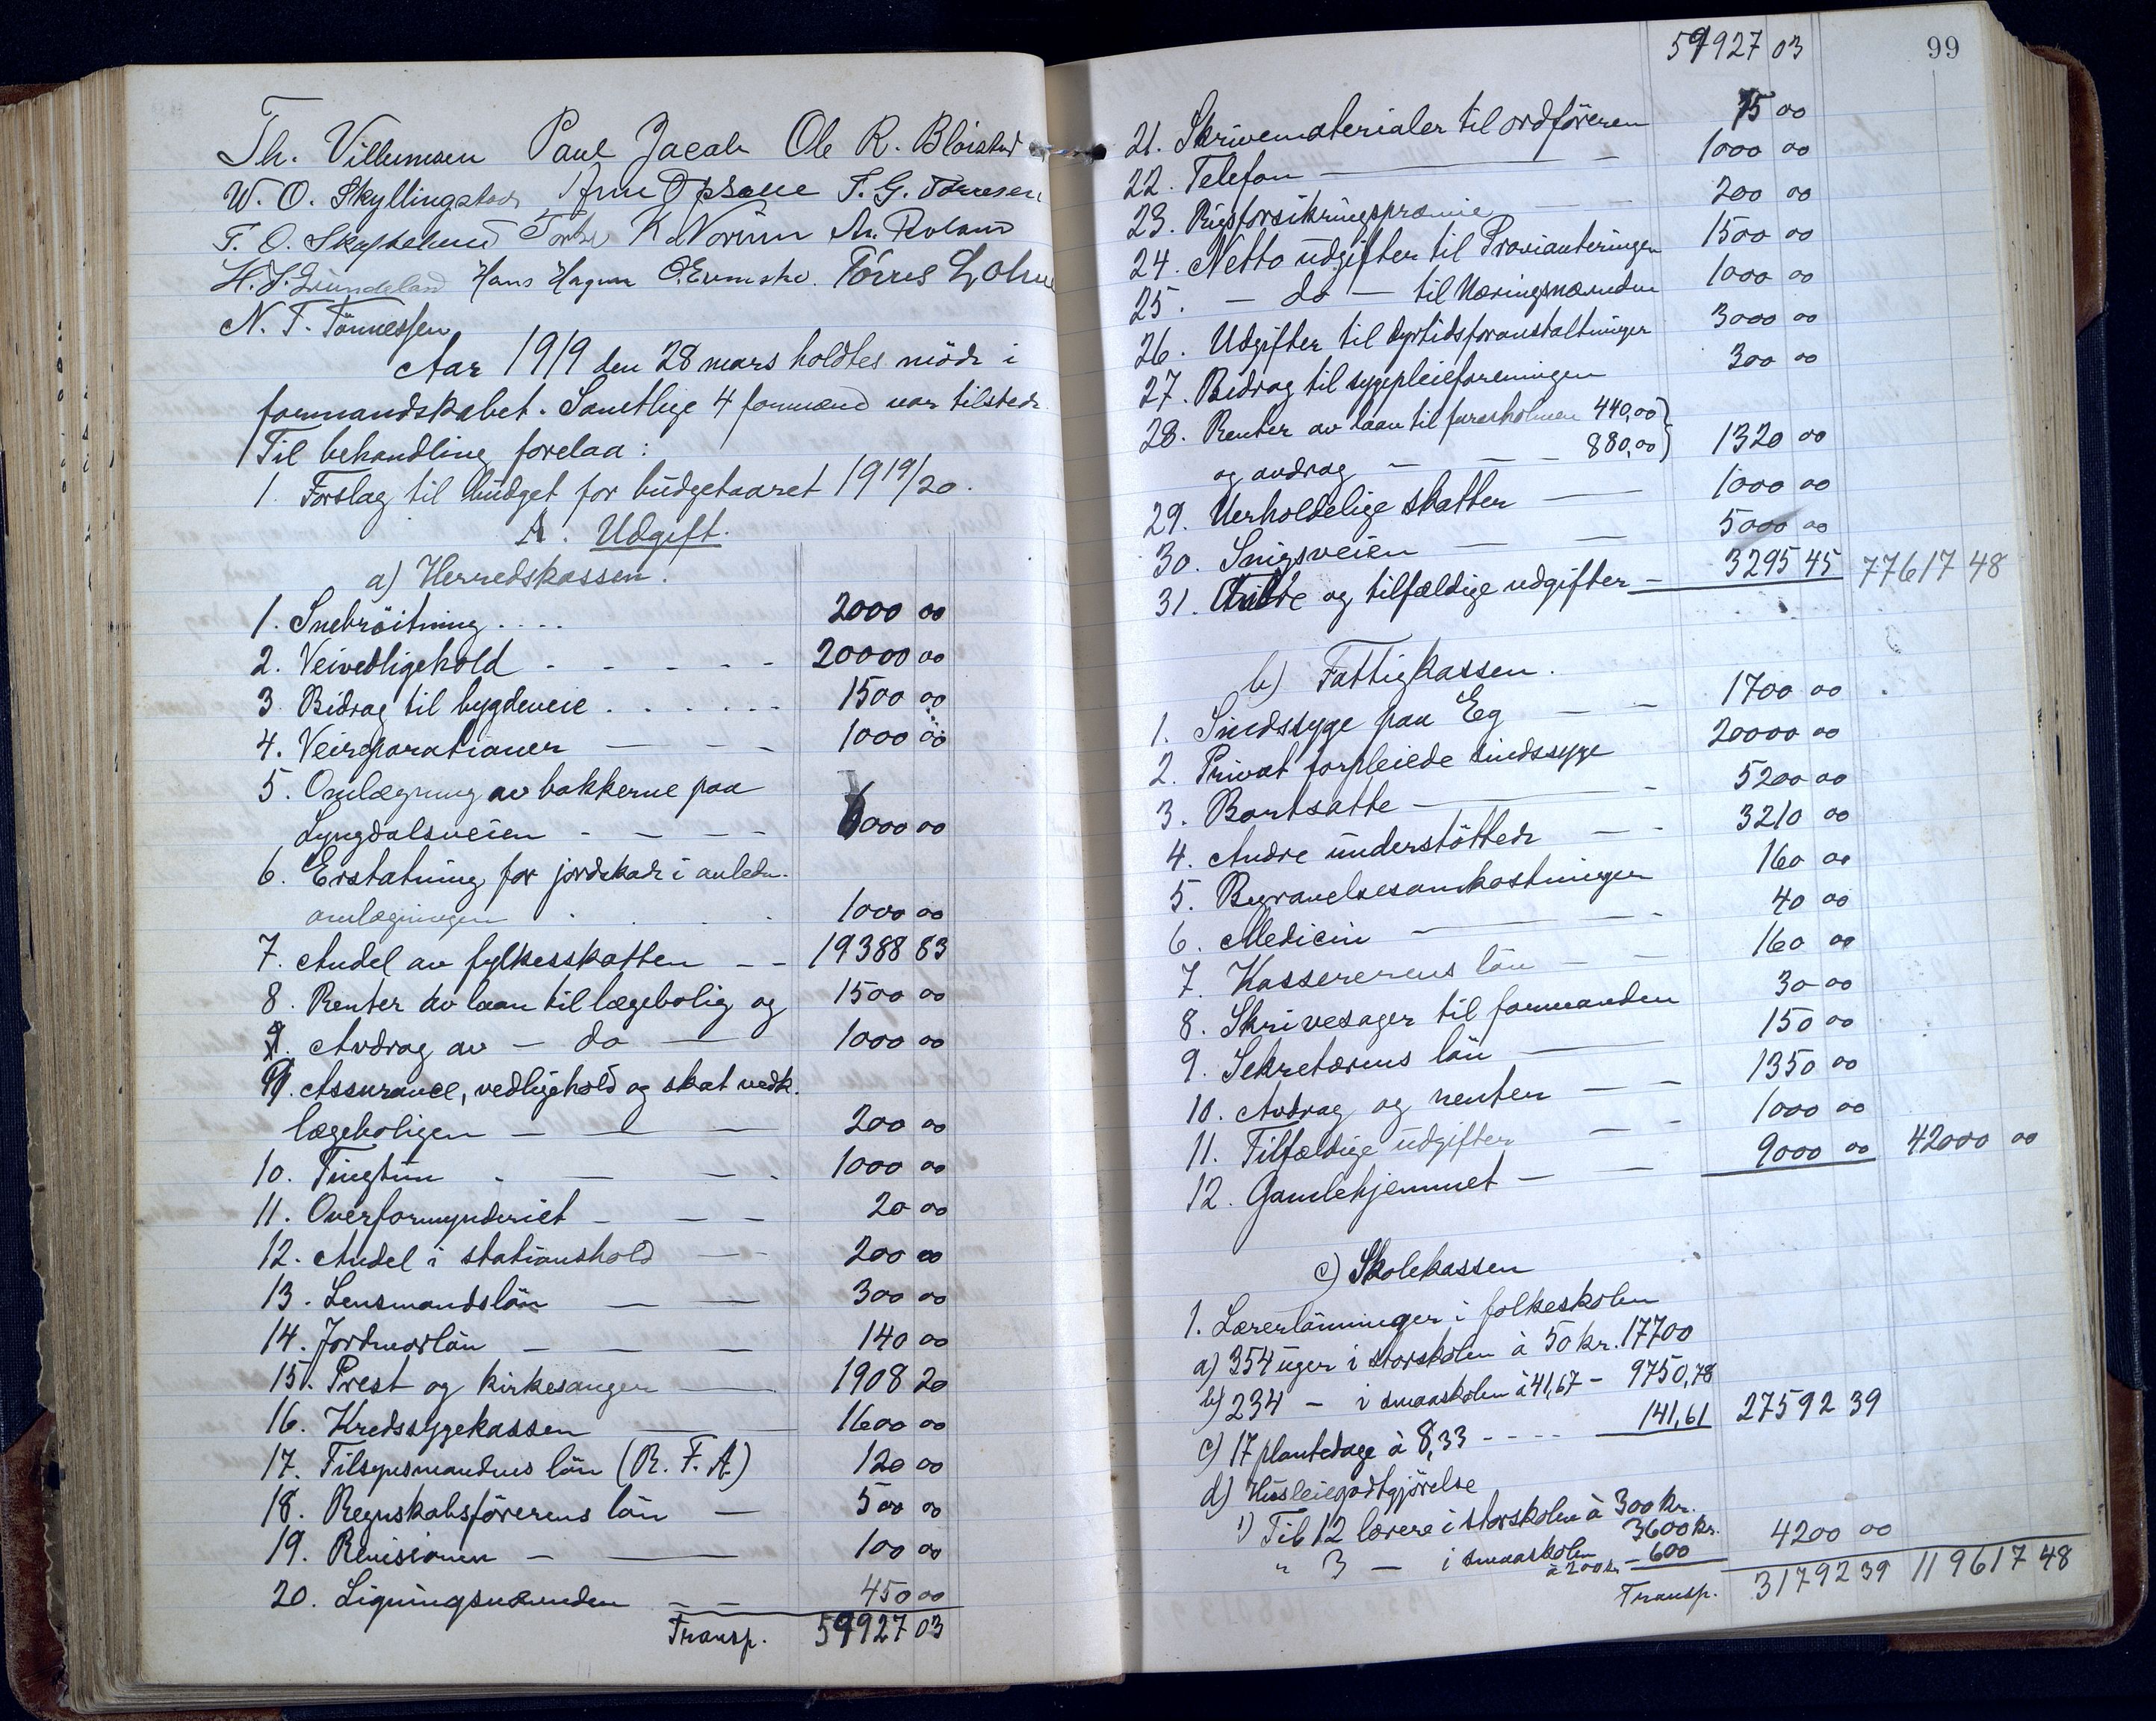 Th. Villumsen Paul Jacob Ole R. Bloistad
W. O. Skyllingstad Arne Opsal T. G. Tønnesen
T. O. K. An. Roland
H. J. Hans Tørres L.
N. T. Tönnessen
Aar 1919 den 28 mars holdtes möde i
formandskabet. Samtlige 4 formænd var tilstede
Til behandling forelaa:
1. Forslag til budget for budgetaaret 1919/20.
A. Udgift.
a) Herredskassen.
1. Snebröitning . . . . 2000 00
2. Veivedligehold - - - - - 20000 00
3. Bidrag til bygdeveie . . . . . . 1500 00
4. Veireparationer — - - 1000 00
5. Omlægning av bakkerne paa
Lyngdalsveien - - - - 6000 00
6. Erstatning for jordskade i anledn.
omlægningen . . . . 1000 00
7. Andel av fylkesskatten - - 19388 83
8. Renter av laan til lægebolig og 1500 00
Avdrag av - do — 1000 00
9. Assurance, vedligehold og skat vedk.
lægeboligen — — — 200 00
10. Tinghus - — - - 1000 00
11. Overformynderiet - — - 20 00
12. Andel i stationshold — - 200 00
13. Lensmandslön — — 300 00
14. Jordmorlön — — — 140 00
15. Prest og kirkesanger — 1908 20
16. Kredssygekassen — 1600 00
17. Tilsynsmandens lön (R. F. A.) 120 00
18. Regnskabsförerens lön — 500 00
19. Revisionen - — 100 00
20. Ligningsnævnden - - 450 00
Transp. 59927 03
99
59927 03
21. Skrivematerialer til ordföreren 75 00
22. Telefon — - 1000 00
23. Krigsforsikringspræmie — - 200 00
24. Netto udgifter til Provianteringen 1500 00
25. - do - til Næringsnævnden 1000 00
26. Udgifter til dyrtidsforanstaltninger 3000 00
27. Bidrag til sygepleieforeningen 300 00
28. Renter av laan til furuholmen 440,00 }
og avdrag - - - 880,00 } 1320 00
29. Uerholdelige skatter — 1000 00
30. Snigsveien — — 5000 00
31. Andre og tilfældige udgifter - 3295 45 77617 48
b) Fattigkassen.
1. Sindssyge paa Eg — - 1700 00
2. Privat forpleiede sindssyge 20000 00
3. Bortsatte — - 5200 00
4. Andre understöttede — - 3210 00
5. Begravelsesomkostninger 160 00
6. Medicin — - 40 00
7. Kassererens lön - - 160 00
8. Skrivesager til formanden 30 00
9. Sekretærens lön — 150 00
10. Avdrag og renter — - 1350 00
11. Tilfældige udgifter — - 1000 00
12. Gamlehjemmet - — 9000 00 42000 00
c) Skolekassen
1. Lærerlönninger i folkeskolen
a) 354 uger i storskolen à 50 kr. 17700
b) 234 - i smaaskolen à 41,67 - 9750,78
c) 17 plantedage à 8,33 - - - - 141,61 27592 39
d) Husleiegodtgjörelse
1) Til 12 lærere i storskolen à 300 kr.
3600 kr.
" 3 - i smaaskolen
à 200 kr. - 600 4200 00
Transp. 31792 39 119617 48